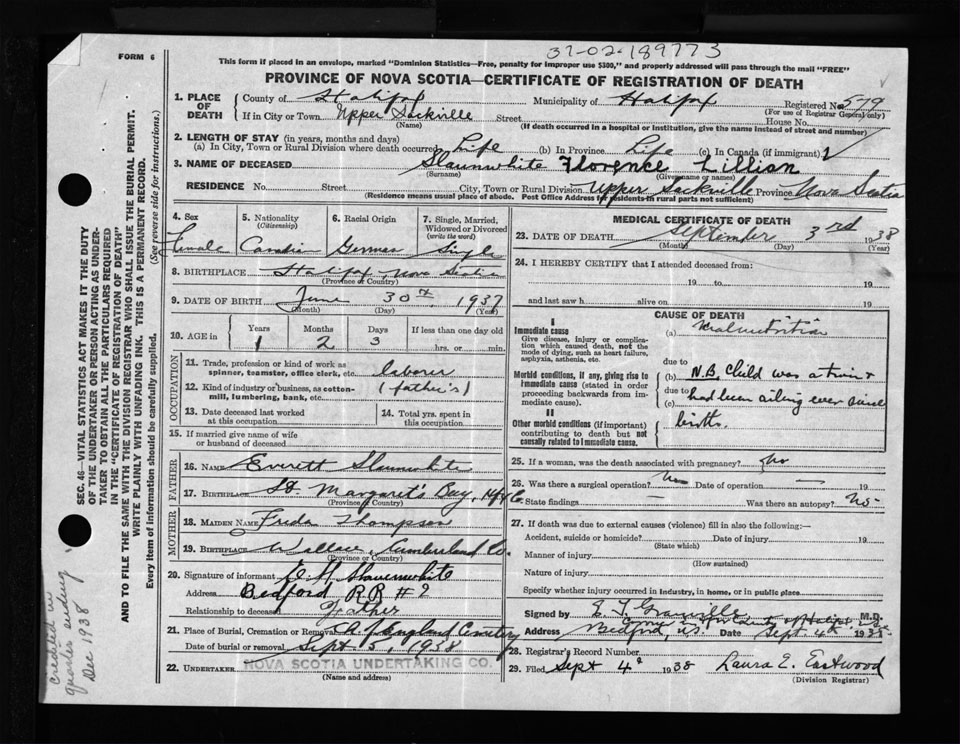 37-02-189773
FORM 6
This form if placed in an envelope, marked "Dominion Statistics—Free, penalty for improper use $300," and properly addressed will pass through the mail "FREE"
PROVINCE OF NOVA SCOTIA—CERTIFICATE OF REGISTRATION OF DEATH
1. PLACE OF DEATH
County of Halifax Municipality of Halifax Registered No. 579
(For use of Registrar General only)
If in City or Town Upper Sackville Street House No.
(Name) (If death occurred in a hospital or institution, give the name instead of street and number)
2. LENGTH OF STAY (in years, months and days)
(a) In City, Town or Rural Division where death occurred Life (b) In Province Life (c) In Canada (if immigrant)
3. NAME OF DECEASED Slaunwhite Florence Lillian
(Surname) (Given name or names)
RESIDENCE No. Street City, Town or Rural Division Upper Sackville Province Nova Scotia
(Residence means usual place of abode. Post Office Address for residents in rural parts not sufficient)
4. Sex
Female
5. Nationality
(Citizenship)
Canadian
6. Racial Origin
German
7. Single, Married, Widowed or Divorced
(write the word)
Single
8. BIRTHPLACE Halifax, Nova Scotia
(Province or Country)
9. DATE OF BIRTH June 30th, 1937
(Month) (Day) (Year)
10. AGE in
Years Months Days If less than one day old
1 2 3 hrs. or min.
OCCUPATION
11. Trade, profession or kind of work as spinner, teamster, office clerk, etc. laborer
12. Kind of industry or business, as cotton-mill, lumbering, bank, etc. (father's)
13. Date deceased last worked at this occupation
14. Total yrs. spent in this occupation
15. If married give name of wife or husband of deceased
FATHER
16. NAME Everett Slaunwhite
17. BIRTHPLACE St. Margaret's Bay, Hfx Co.
(Province or Country)
MOTHER
18. MAIDEN NAME Freda Thompson
19. BIRTHPLACE Wallace, Cumberland Co.
(Province or Country)
20. Signature of informant E. H. Slaunwhite
Address Bedford RR #2
Relationship to deceased Father
21. Place of Burial, Cremation or Removal England Cemetery
Date of burial or removal Sept 5, 1938
22. UNDERTAKER NOVA SCOTIA UNDERTAKING CO.
(Name and address)
MEDICAL CERTIFICATE OF DEATH
23. DATE OF DEATH September 3rd 1938
(Month) (Day) (Year)
24. I HEREBY CERTIFY that I attended deceased from:
19 to 19
and last saw h alive on 19
CAUSE OF DEATH
I
Immediate cause
Give disease, injury or complication which caused death, not the mode of dying, such as heart failure, asphyxia, asthenia, etc.
(a) Malnutrition
due to
Morbid conditions, if any, giving rise to immediate cause (stated in order proceeding backwards from immediate cause).
(b) N.B. Child was a twin &
due to had been ailing ever since
(c) birth.
II
Other morbid conditions (if important) contributing to death but not causally related to immediate cause.
25. If a woman, was the death associated with pregnancy? No
26. Was there a surgical operation? No Date of operation — 19
State findings — Was there an autopsy? No-
27. If death was due to external causes (violence) fill in also the following:-
Accident, suicide or homicide? Date of injury 19
(State which)
Manner of injury
(How sustained)
Nature of injury
Specify whether injury occurred in industry, in home, or in public place
Signed by E. T. Granville M.D.
Address Bedford, N.S. Date Sept. 4th 1938
28. Registrar's Record Number
29. Filed Sept 4th 1938 Laura E. Eastwood
(Division Registrar)
SEC. 46—VITAL STATISTICS ACT MAKES IT THE DUTY
OF THE UNDERTAKER OR PERSON ACTING AS UNDER-
TAKER TO OBTAIN ALL THE PARTICULARS REQUIRED
IN THE "CERTIFICATE OF REGISTRATION OF DEATH"
AND TO FILE THE SAME WITH THE DIVISION REGISTRAR WHO SHALL ISSUE THE BURIAL PERMIT.
WRITE PLAINLY WITH UNFADING INK. THIS IS A PERMANENT RECORD.
Every item of information should be carefully supplied. (See reverse side for instructions.)
credited in
quarter ending
Dec 1938